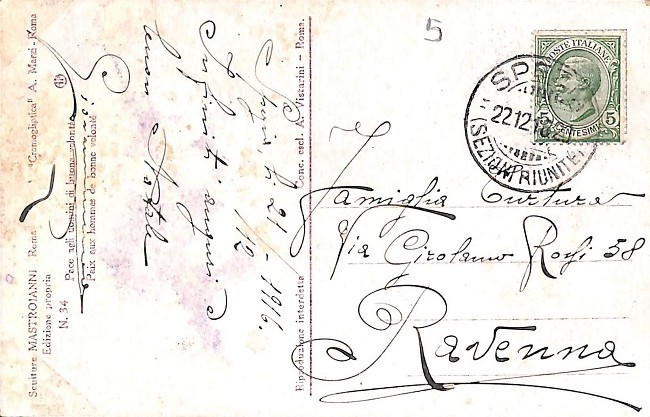 Sculture MASTROIANNI Roma "Cromogliptica" A. Marzi - Roma
Edizione propria
N. 34
Pace agli uomini di buona volontà
Paix aux hommes de bonne volonté
buon Natale
Infiniti auguri
21-12-1916.
Riproduzione interdetta Conc. escl. A. Vistarini - Roma.
5
POSTE ITALIANE
5 CENTESIMI 5
22.12.16
(SEZIONI RIUNITE)
Famiglia
Via Girolamo Rossi 58
Ravenna